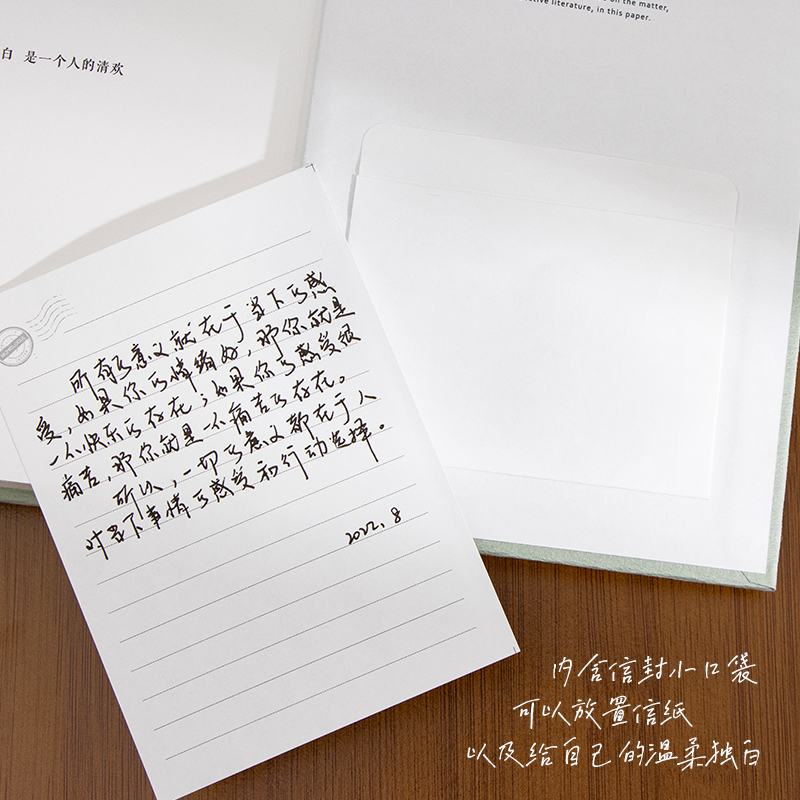 on the matter,
ctive literature, in this paper.
白 是一个人的清欢
所有的意义就在于当下的感
受，如果你的情绪好，那你就是
一个快乐的存在；如果你的感受很
痛苦，那你就是一个痛苦的存在。
所以，一切的意义都在于人
对当下事情的感受和行动选择。
2022.8
内含信封小口袋
可以放置信纸
以及给自己的温柔独白